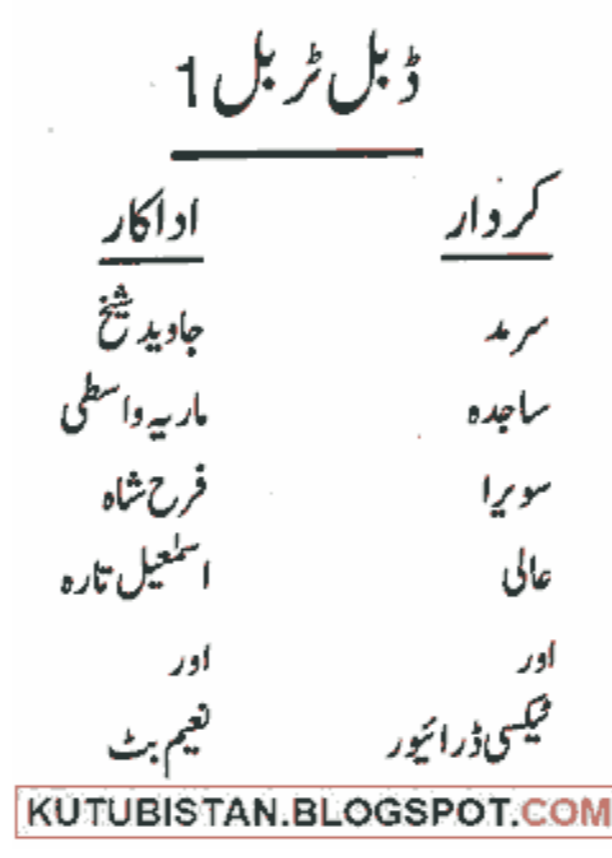 ڈبل ٹربل 1
کردار اداکار
سرمد جاوید شیخ
ساجدہ ماریہ واسطی
سویرا فرح شاہ
عالی اسمٰعیل تارہ
اور اور
ٹیکسی ڈرائیور نعیم بٹ
KUTUBISTAN.BLOGSPOT.COM